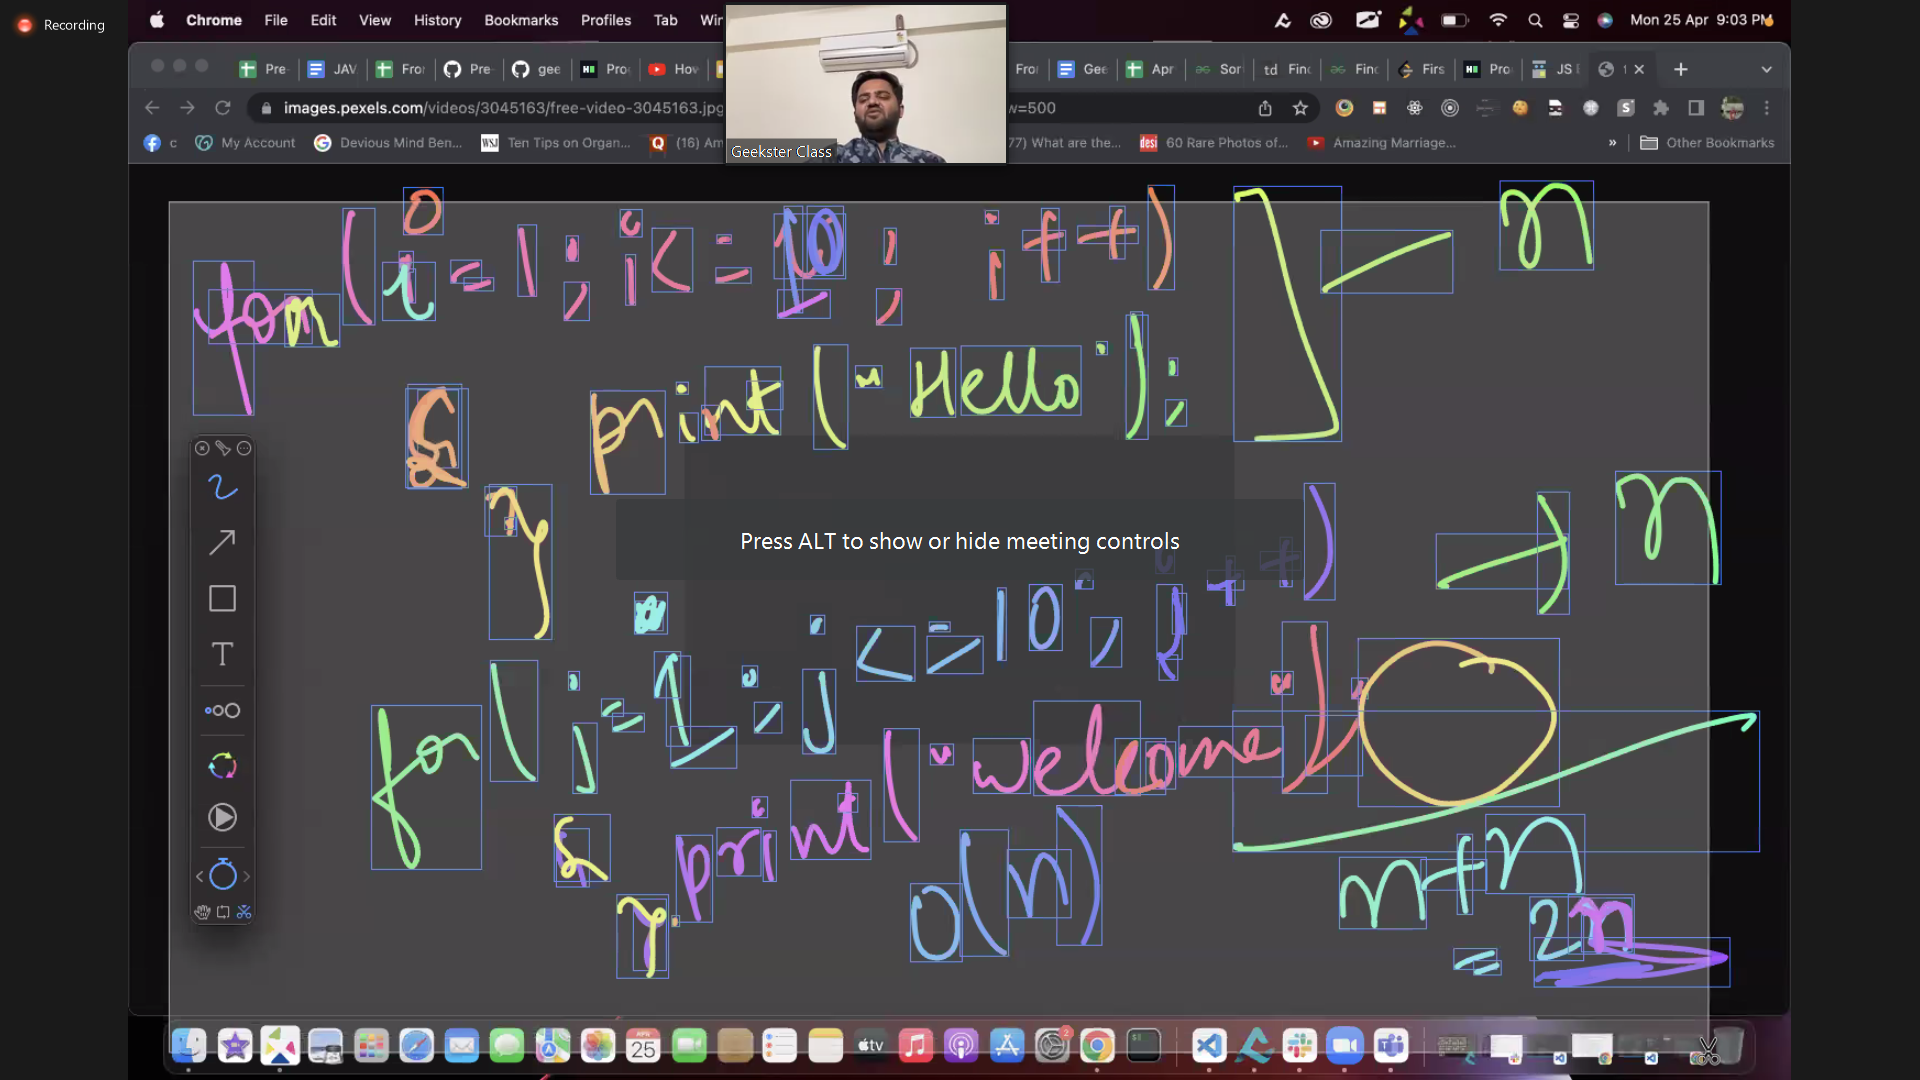 Recording
Chrome File Edit View History Bookmarks Profiles Tab Wi
Mon 25 Apr 9:03 PM
Pre- JAV Fror Pre- gee Pro How Fror Gee Apr Sor Finc Finc Firs Pro JS
images.pexels.com/videos/3045163/free-video-3045163.jpg w=500
c My Account Devious Mind Ben... Ten Tips on Organ... (16) Am 77) What are the... 60 Rare Photos of... Amazing Marriage... » Other Bookmarks
Geekster Class
for(i=1; i<=10; i++) n
{ print("Hello");
}
Press ALT to show or hide meeting controls
n
for(j=1; j<=10; j++)
{ print("welcome");
}
O(n)
n+n
=2n
APR
25
tv